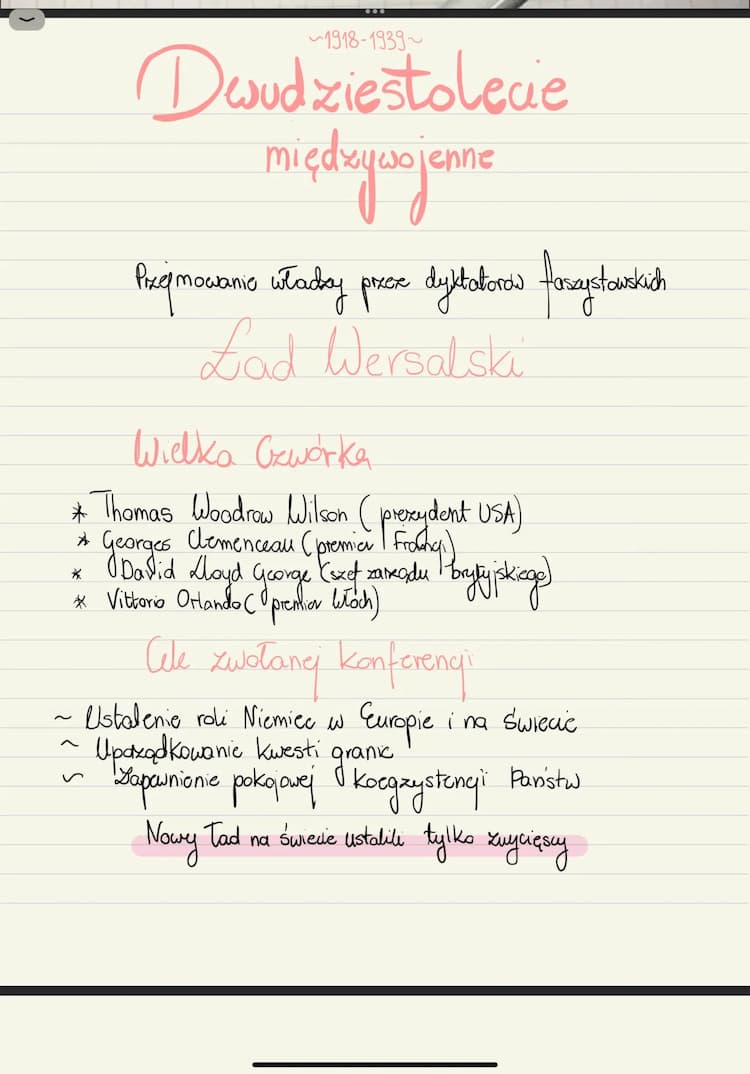 ~1918-1939~
Dwudziestolecie
międzywojenne
Przejmowanie władzy przez dyktatorów faszystowskich
Ład Wersalski
Wielka Czwórka
* Thomas Woodrow Wilson (prezydent USA)
* Georges Clemenceau (premier Francji)
* David Lloyd George (szef zarządu brytyjskiego)
* Vittorio Orlando (premier Włoch)
Cele zwołanej konferencji
~ Ustalenie roli Niemiec w Europie i na świecie
~ Uporządkowanie kwesti granic
~ Zapewnienie pokojowej koegzystencji Państw
Nowy Ład na świecie ustalili tylko zwycięscy